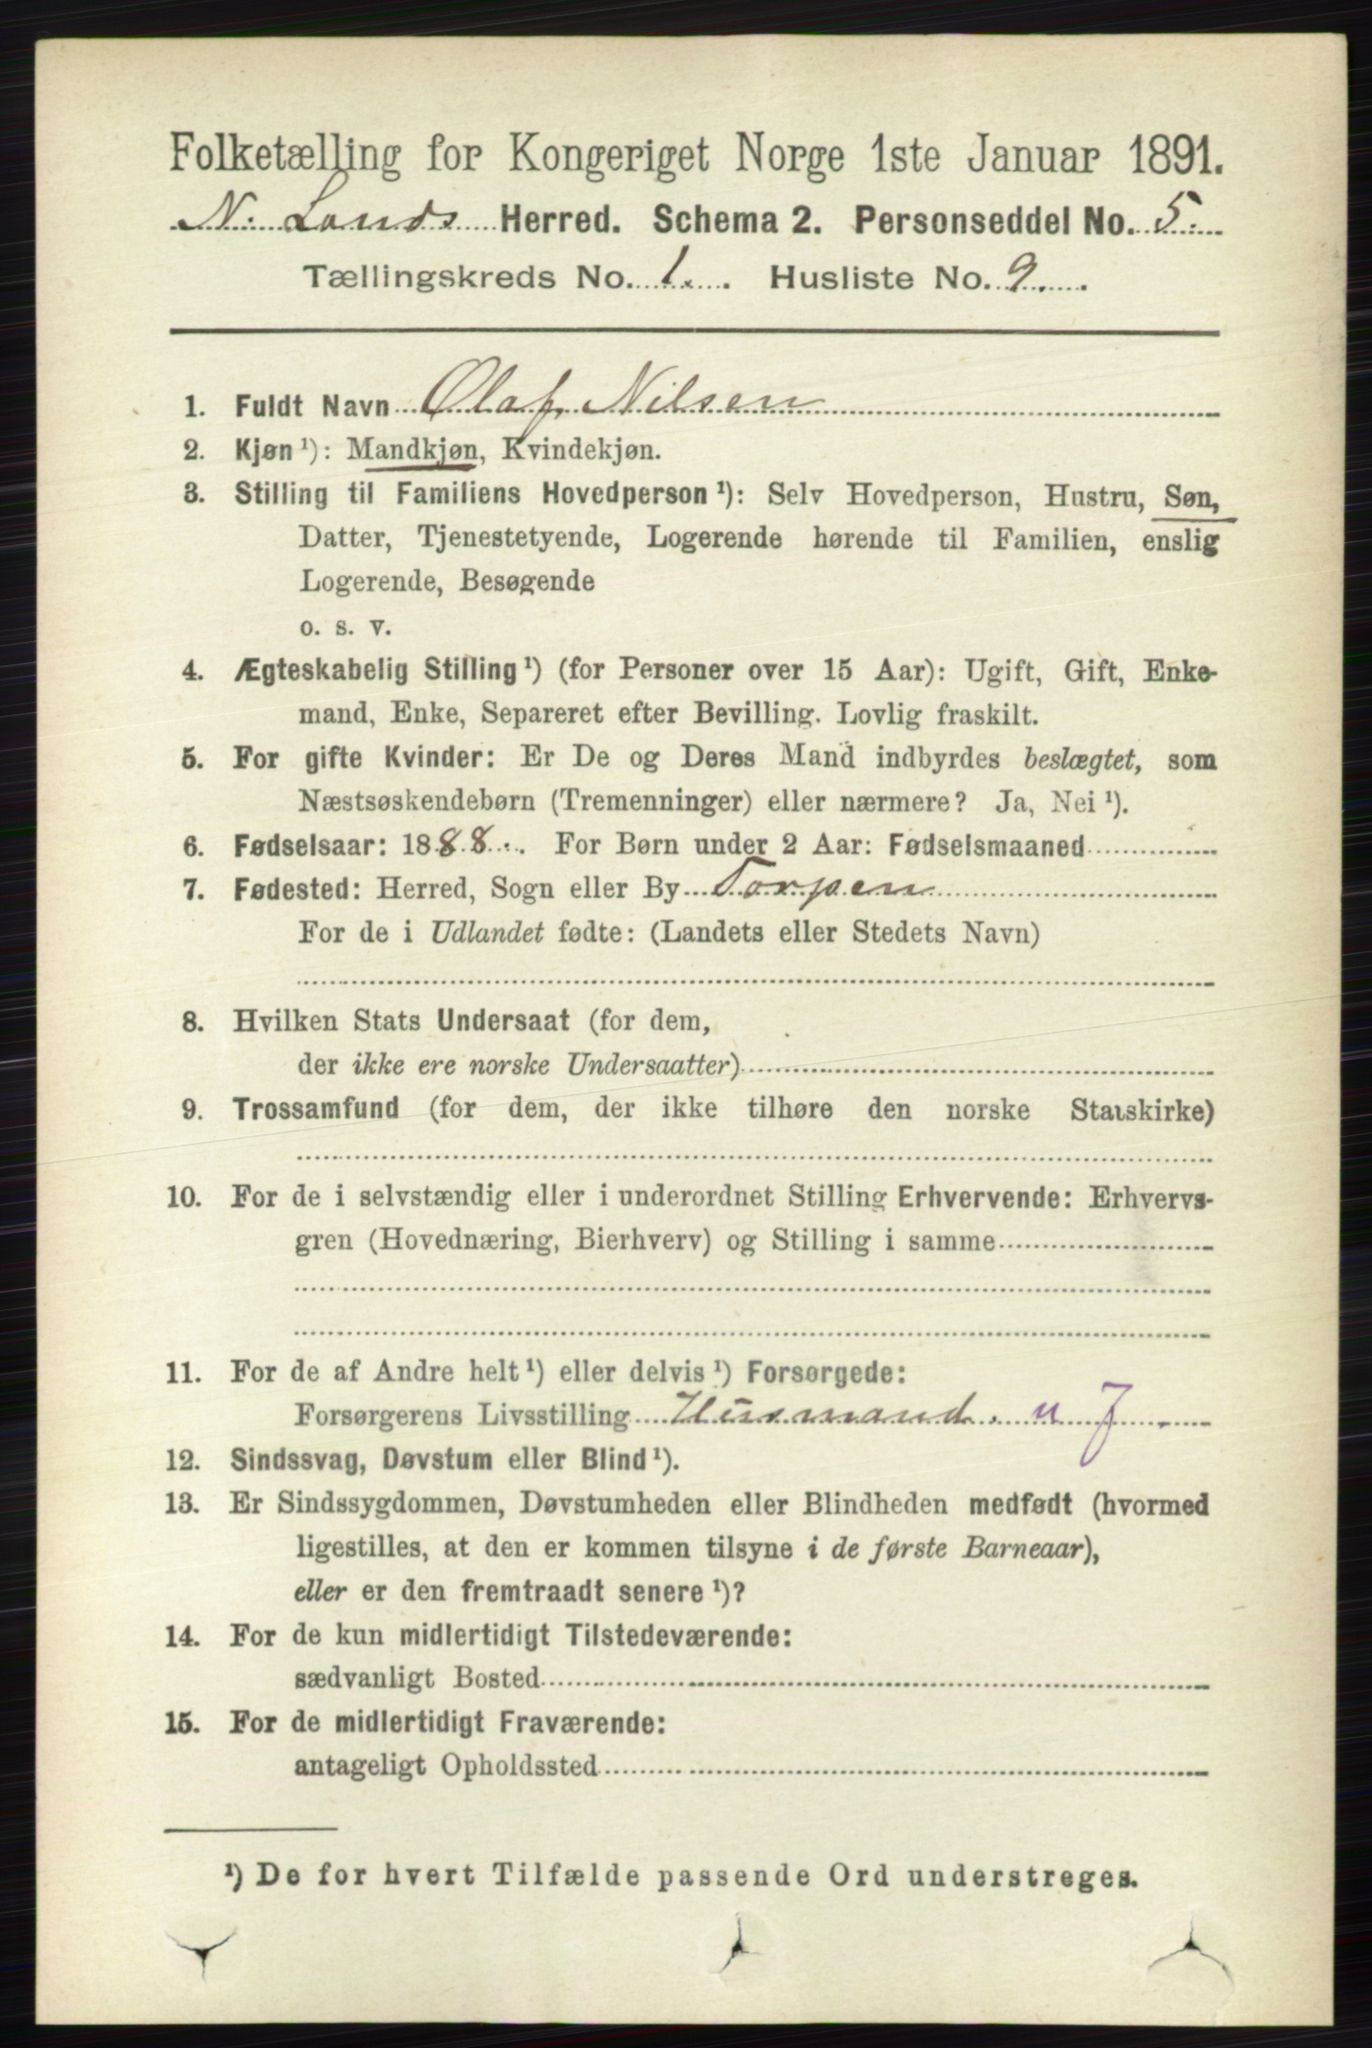 Folketælling for Kongeriget Norge 1ste Januar 1891.
N. Lands Herred. Schema 2. Personseddel No. 5.
Tællingskreds No. 1. Husliste No. 9.
1. Fuldt Navn Olaf Nilsen
2. Kjøn ¹): Mandkjøn, Kvindekjøn.
3. Stilling til Familiens Hovedperson ¹): Selv Hovedperson, Hustru, Søn,
Datter, Tjenestetyende, Logerende hørende til Familien, enslig
Logerende, Besøgende
o. s. v.
4. Ægteskabelig Stilling ¹) (for Personer over 15 Aar): Ugift, Gift, Enke-
mand, Enke, Separeret efter Bevilling. Lovlig fraskilt.
5. For gifte Kvinder: Er De og Deres Mand indbyrdes beslægtet, som
Næstsøskendebørn (Tremenninger) eller nærmere? Ja, Nei ¹).
6. Fødselsaar: 1888. For Børn under 2 Aar: Fødselsmaaned
7. Fødested: Herred, Sogn eller By Torpen
For de i Udlandet fødte: (Landets eller Stedets Navn)
8. Hvilken Stats Undersaat (for dem,
der ikke ere norske Undersaatter)
9. Trossamfund (for dem, der ikke tilhøre den norske Statskirke)
10. For de i selvstændig eller i underordnet Stilling Erhvervende: Erhvervs-
gren (Hovednæring, Bierhverv) og Stilling i samme
11. For de af Andre helt ¹) eller delvis ¹) Forsørgede:
Forsørgerens Livsstilling Husmand. u J.
12. Sindssvag, Døvstum eller Blind ¹).
13. Er Sindssygdommen, Døvstumheden eller Blindheden medfødt (hvormed
ligestilles, at den er kommen tilsyne i de første Barneaar),
eller er den fremtraadt senere ¹)?
14. For de kun midlertidigt Tilstedeværende:
sædvanligt Bosted
15. For de midlertidigt Fraværende:
antageligt Opholdssted
¹) De for hvert Tilfælde passende Ord understreges.